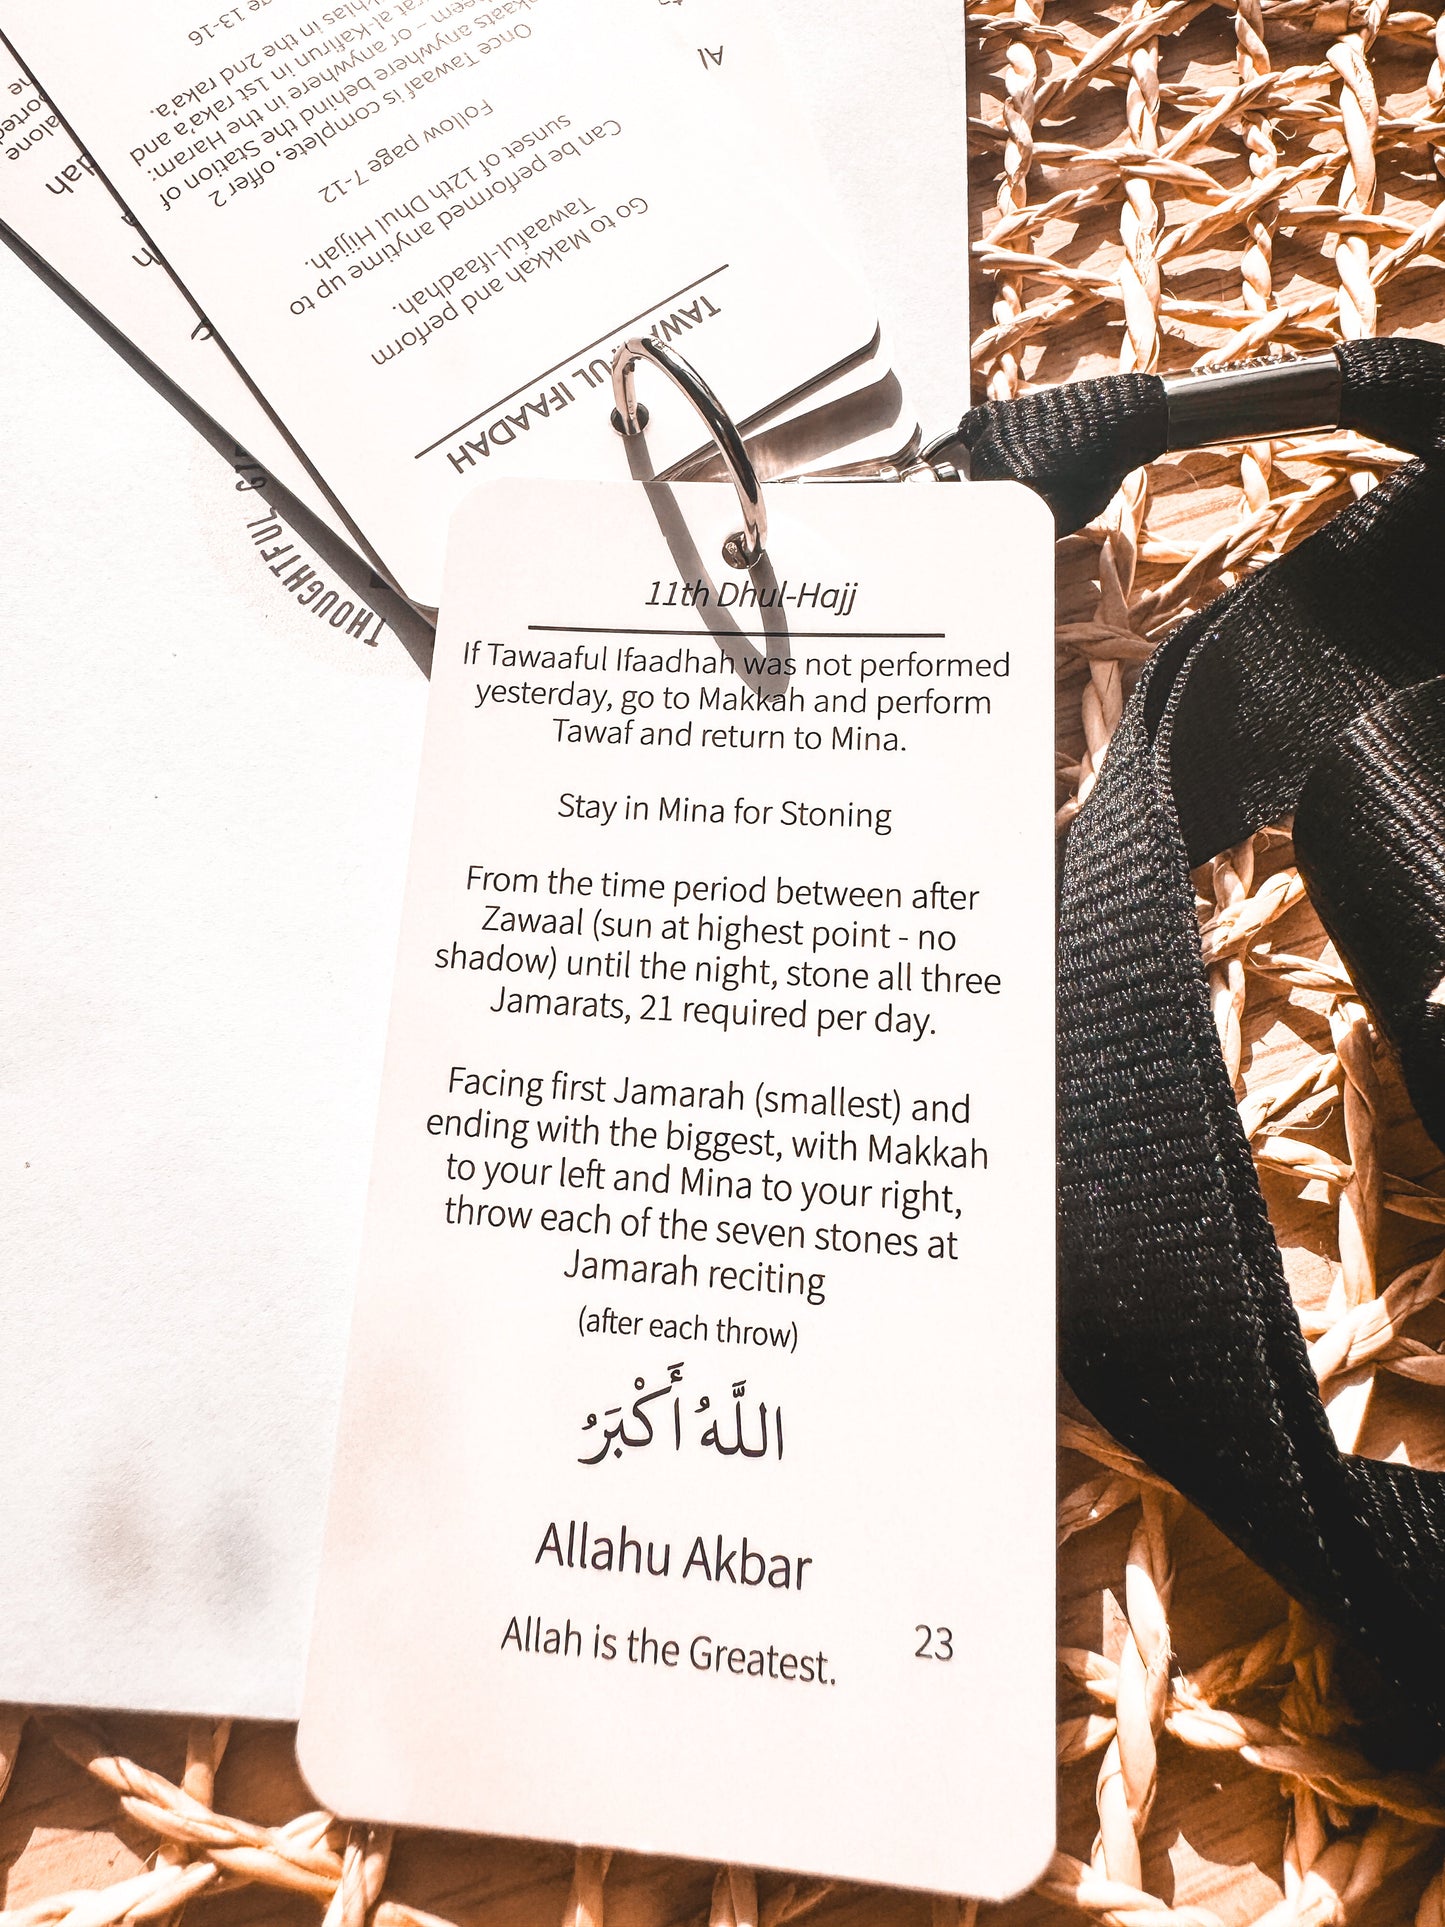 11th Dhul-Hajj
If Tawaaful Ifaadhah was not performed
yesterday, go to Makkah and perform
Tawaf and return to Mina.
Stay in Mina for Stoning
From the time period between after
Zawaal (sun at highest point - no
shadow) until the night, stone all three
Jamarats, 21 required per day.
Facing first Jamarah (smallest) and
ending with the biggest, with Makkah
to your left and Mina to your right,
throw each of the seven stones at
Jamarah reciting
(after each throw)
اللَّهُ أَكْبَرُ
Allahu Akbar
Allah is the Greatest.
23
TAWAAFUL IFAADAH
Go to Makkah and perform
Tawaaful-Ifaadhah.
Can be performed anytime up to
sunset of 12th Dhul Hijjah.
Follow page 7-12
Once Tawaaf is complete, offer 2
anywhere behind the Station of
or anywhere in the Haram:
al-Kafirun in 1st raka'a and
in the 2nd raka'a.
13-16
Al
alone
THOUGHTFUL